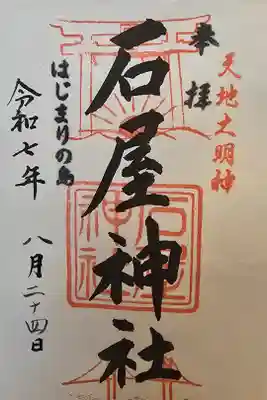 天地大明神
奉拝
石屋神社
石屋神社
はじまりの島
令和七年
八月二十四日